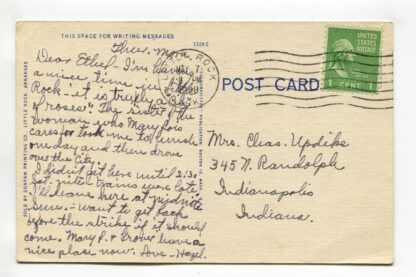 THIS SPACE FOR WRITING MESSAGES
Thurs. Morn.
Dear Ethel - I'm having
a nice time in Little
Rock - it is truly a "City
of roses". The sister of the
woman who Mary Lois
cares for took me to lunch
one day and then drove
over the City.
I didn't get here until 2:30
Sat. Trains were late
I'll leave here at midnite
Sun. - want to get back
before the strike if it should
come. Mary L. & Grover have a
nice place now. Love - Hazel.
ROCK
POST CARD
UNITED STATES
POSTAGE
1 CENT 1
Mrs. Chas. Updike
345 N. Randolph
Indianapolis
Indiana.
SOLD BY DURHAM PRINTING CO., LITTLE ROCK, ARKANSAS